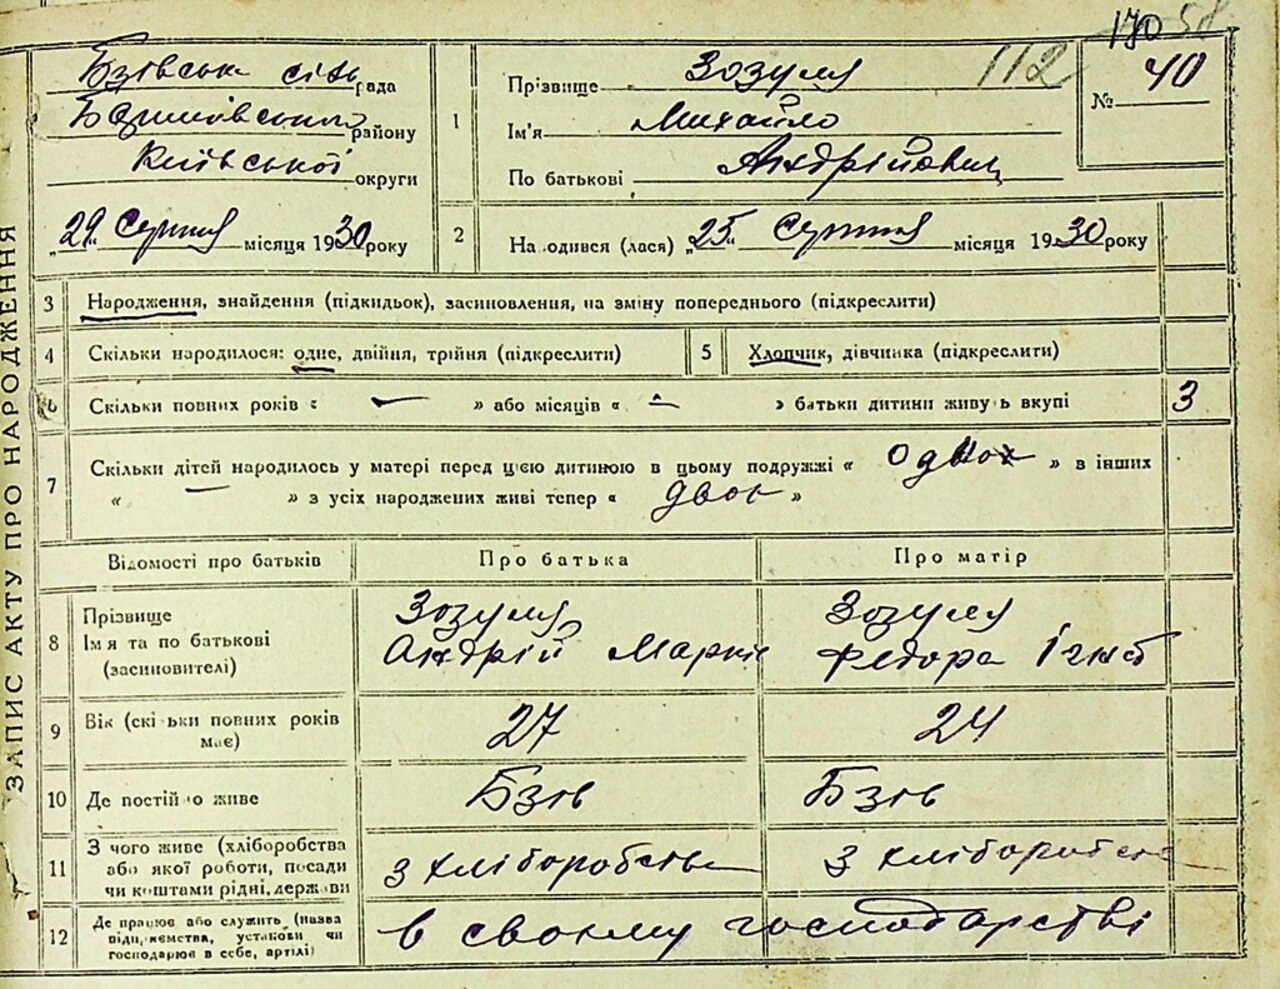 170 58
112
ЗАПИС АКТУ ПРО НАРОДЖЕННЯ
Бзівськ сіль рада
Баришівського району
Київської округи
„29“ Серпня місяця 1930 року
1
Прізвище Зозуля
Ім'я Михайло
По батькові Андрійович
№ 40
2 На одився (лася) „25“ Серпня місяця 1930 року
3 Народження, знайдення (підкидьок), засиновлення, на зміну попереднього (підкреслити)
4 Скільки народилося: одне, двійня, трійня (підкреслити) 5 Хлопчик, дівчинка (підкреслити)
6 Скільки повних років « — » або місяців « — » батьки дитини живу ь вкупі 3
7 Скільки дітей народилось у матері перед цією дитиною в цьому подружжі « одно » в інших
« — » з усіх народжених живі тепер « двоє »
Відомості про батьків Про батька Про матір
8 Прізвище Зозуля Зозуля
Ім я та по батькові Андрій Марків Федора Ігнат
(засиновителі)
9 Вік (скі ьки повних років 27 24
має)
10 Де постій о живе Бзів Бзів
11 З чого живе (хліборобства
або якої роботи, посади з хліборобства з хліборобства
чи коштами рідні, держави
12 Де працює або служить (назва
підприємства, установи чи в своєму господарстві
господарює в себе, артілі)